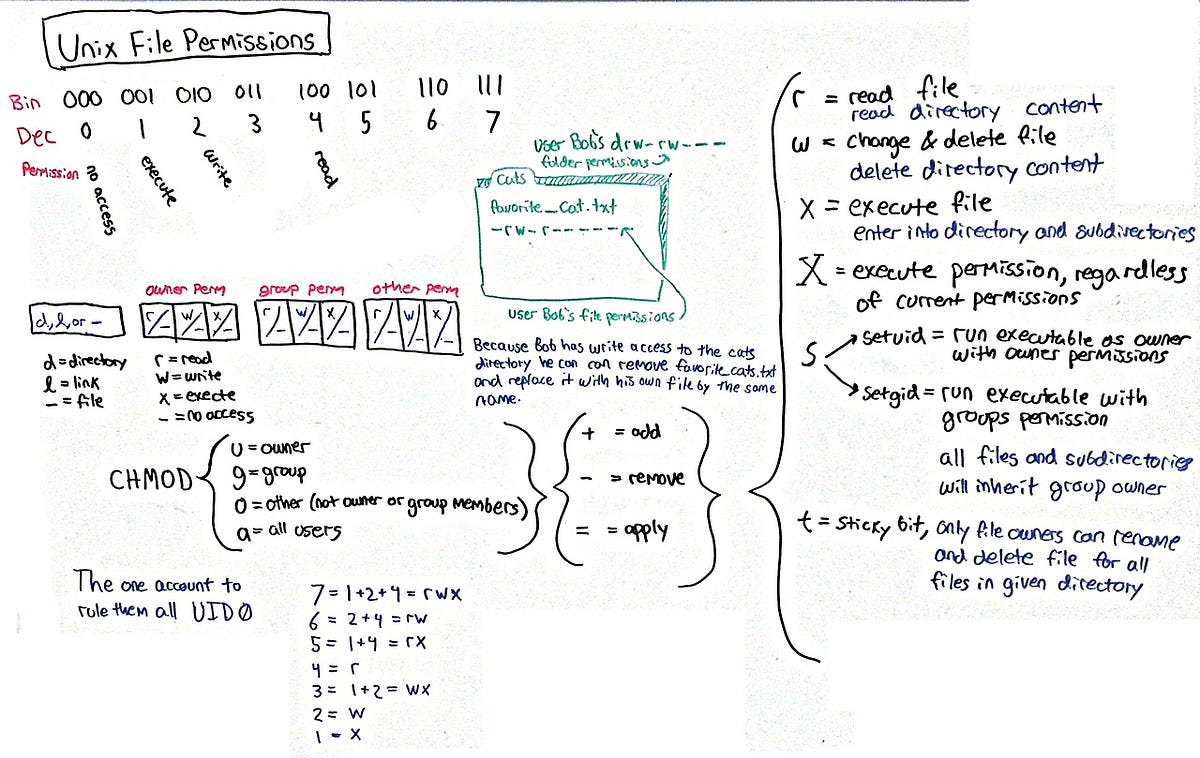 Unix File Permissions
Bin 000 001 010 011 100 101 110 111
Dec 0 1 2 3 4 5 6 7
Permission no access execute write read
user Bob's drw-rw----
folder permissions
Cats
favorite_cat.txt
-rw-r------
user Bob's file permissions
Because Bob has write access to the cats
directory he can can remove favorite_cats.txt
and replace it with his own file by the same
name.
owner perm group perm other perm
d,l,or - r/- w/- x/- r/- w/- x/- r/- w/- x/-
d=directory
l = link
- = file
r = read
w = write
x = execte
- = no access
CHMOD
u = owner
g = group
o = other (not owner or group members)
a = all users
+ = add
- = remove
= = apply
r = read file
read directory content
w = change & delete file
delete directory content
x = execute file
enter into directory and subdirectories
X = execute permission, regardless
of current permissions
s
setuid = run executable as owner
with owner permissions
setgid = run executable with
groups permission
all files and subdirectories
will inherit group owner
t = sticky bit, only file owners can rename
and delete file for all
files in given directory
The one account to
rule them all UID0
7 = 1+2+4 = rwx
6 = 2+4 = rw
5 = 1+4 = rx
4 = r
3 = 1+2 = wx
2 = w
1 - x